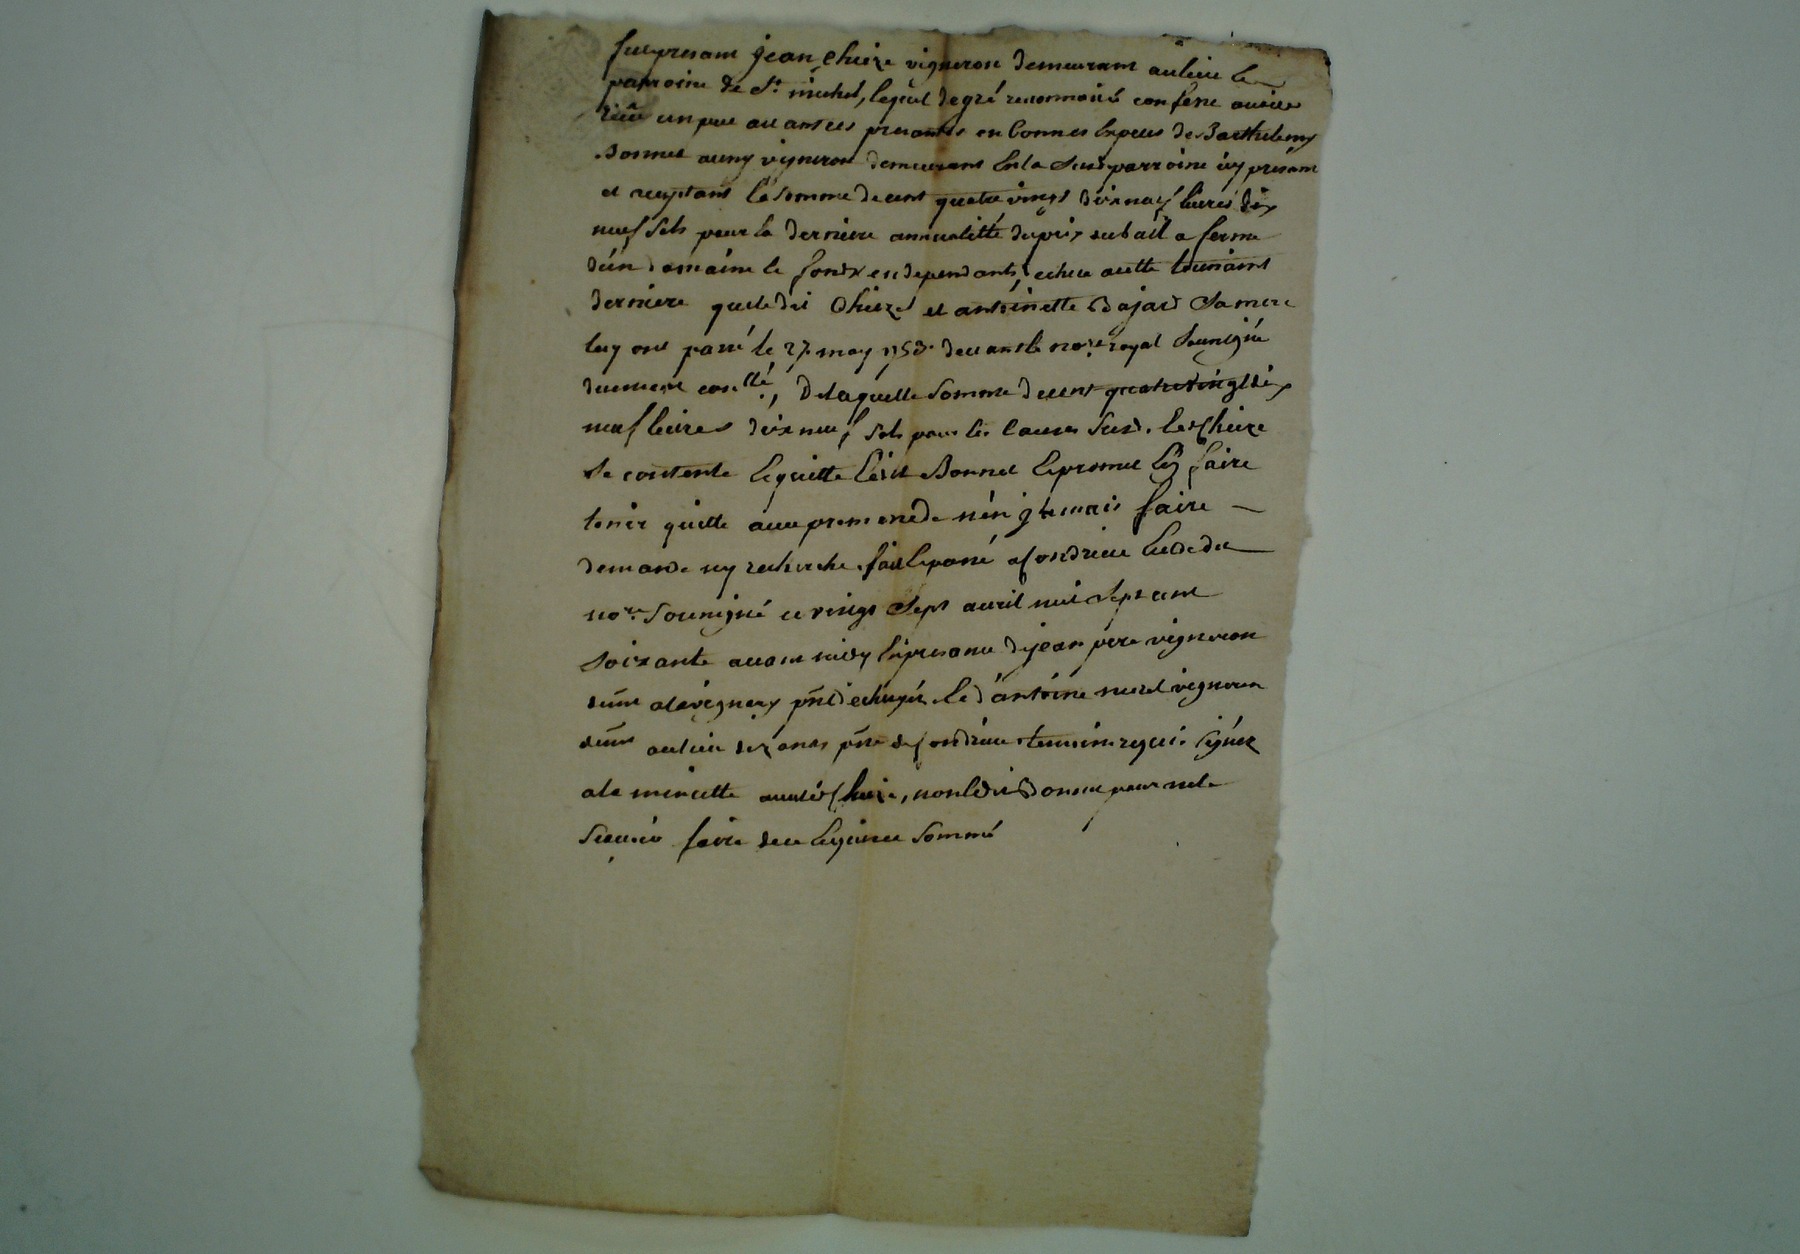 fut present jean Chieze vigneron demeurant au lieu et
parroisse de St michel, lequel de gré reconnoit et confesse avoir
reçu un peu avant ces presantes en bonnes especes de Barthelemy
Bonnet aussy vigneron demeurant en la susd parroisse icy present
et acceptant la somme de cent quatre vingt dix neuf livres dix
neuf sols pour la derniere annualitté du prix du bail a ferme
d'un domaine et fonds en dependants, echue a tous saint
derniere que ledit Chieze et antoinette Bajard sa mere
luy ont passé le 27 may 1753 devant le nore royal soussigné
duement conllé, de laquelle somme de cent quatre vingt dix
neuf livres dix neuf sols pour les causes susd. led Chieze
se contente et quitte ledit Bonnet et promet l'en faire
tenir quitte avec promesse de n'en jamais faire
demande ny recherche. fait et passé a Condrieu etude du
nore soussigné ce vingt sept avril mil sept cent
soixante avant midy en presance de jean pere vigneron
demt a pnt et d'antoine vigneron
demt au lieu psse de Condrieu temoins requis signez
a la minutte avec led Chieze, non ledit Bonnet pour ne le
scavoir faire de ce enquis et sommé